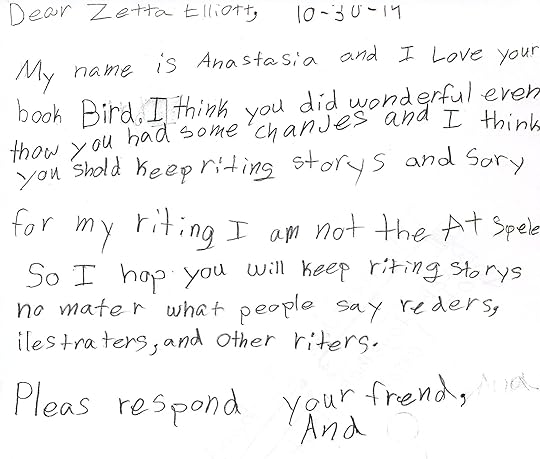 Dear Zetta Elliott, 10-30-14
My name is Anastasia and I Love your
book Bird. I think you did wonderful even
thow you had some chanjes and I think
you shold keep riting storys and Sory
for my riting I am not the At Spele
So I hop you will keep riting storys
no mater what people say reders,
ilestraters, and other riters.
Pleas respond your frend,
And